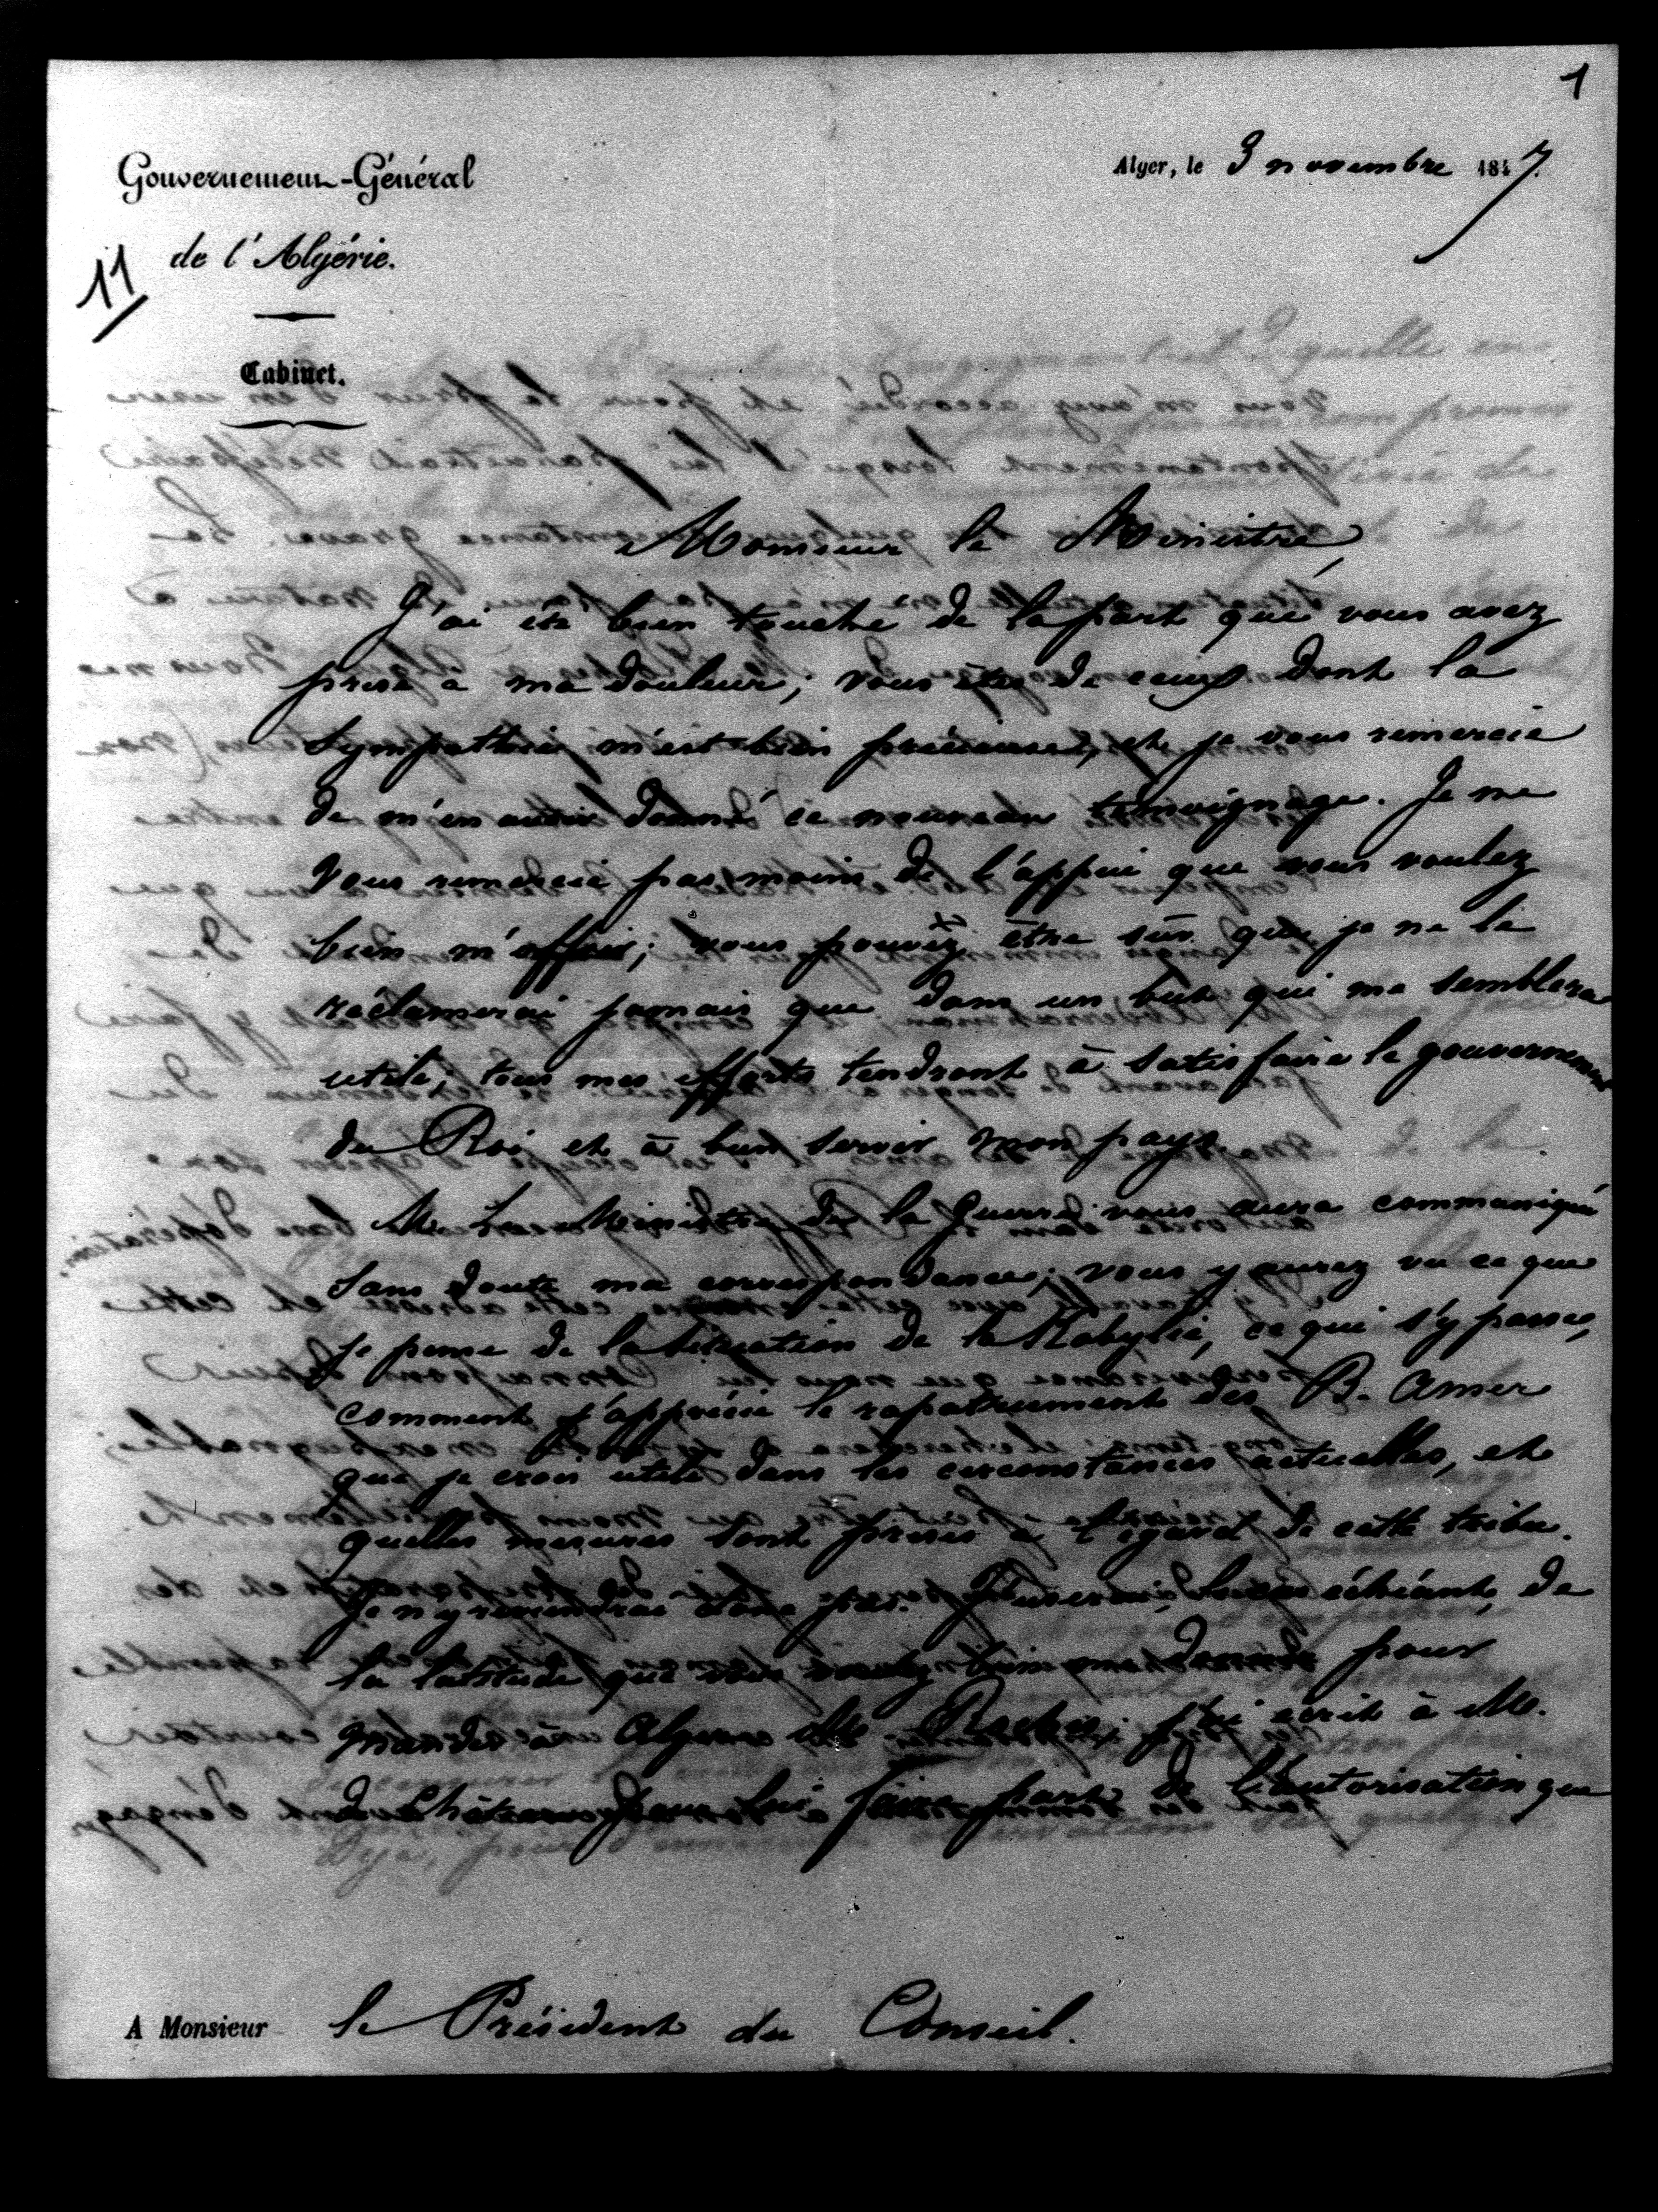 1
Gouvernement-Général
Alger, le 3 novembre 1847.
de l'Algérie.
11
Cabinet.
Monsieur le Ministre,
J'ai été bien touché de la part que vous avez
prise à ma douleur; vous êtes de ceux dont la
sympathie m'est bien précieuse, et je vous remercie
de m'en avoir donné ce nouveau témoignage. Je ne
vous remercie pas moins de l'appui que vous voulez
bien m'offrir; vous pouvez être sûr que je ne le
réclamerai jamais que dans un but qui me semblera
utile; tous mes efforts tendront à satisfaire le gouvernement
du Roi et à bien servir mon pays.
M. Le Ministre de la Guerre vous aura communiqué
sans doute ma correspondance; vous y aurez vu ce que
je pense de la situation de la Kabylie, ce qui s'y passe,
comment j'apprécie le rapatriement des B. Amer
que je crois utile dans les circonstances actuelles, et
quelles mesures sont prises à l'égard de cette tribu.
Je n'y reviendrai donc pas. J'userai, le cas échéant, de
la latitude que vous voulez bien me donner pour
mander à Alger M. Roches; j'ai écrit à M.
de Chateau pour lui faire part de l'autorisation que
A Monsieur le Président du Conseil.